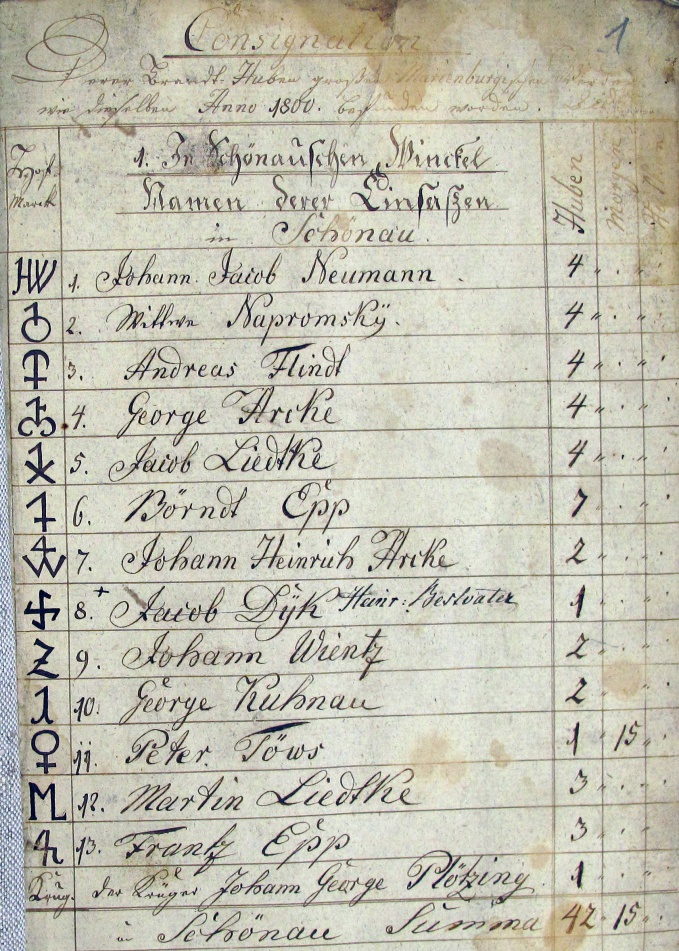 1
Consignation
Derer Brandt-Huben großen Marienburgischen
wie dieselben Anno 1800. befunden worden.
Hoff- Marck
1. In Schönauschen Winckel
Namen derer Einsaßen
in Schönau.
Huben Morgen
HW 1. Johann Jacob Neumann 4 " . "
2. Wittwe Napromskÿ. 4 " . "
3. Andreas Flindt 4 " . "
4. George Arcke 4 " . "
5. Jacob Liedtke 4 " . "
6. Börndt Epp 7 " . "
7. Johann Heinrich Arcke 2 " . "
8. + Jacob Dÿk Heinr: Bestvater 1 " . "
9. Johann Wientz 2 " . "
10. George Kuhnau 2 " . "
11. Peter Töws 1 15 "
12. Martin Liedtke 3 " . "
13. Frantz Epp 3 " . "
Krug. der Krüger Johann George Plötzing 1 " . "
in Schönau Summa 42 15 "